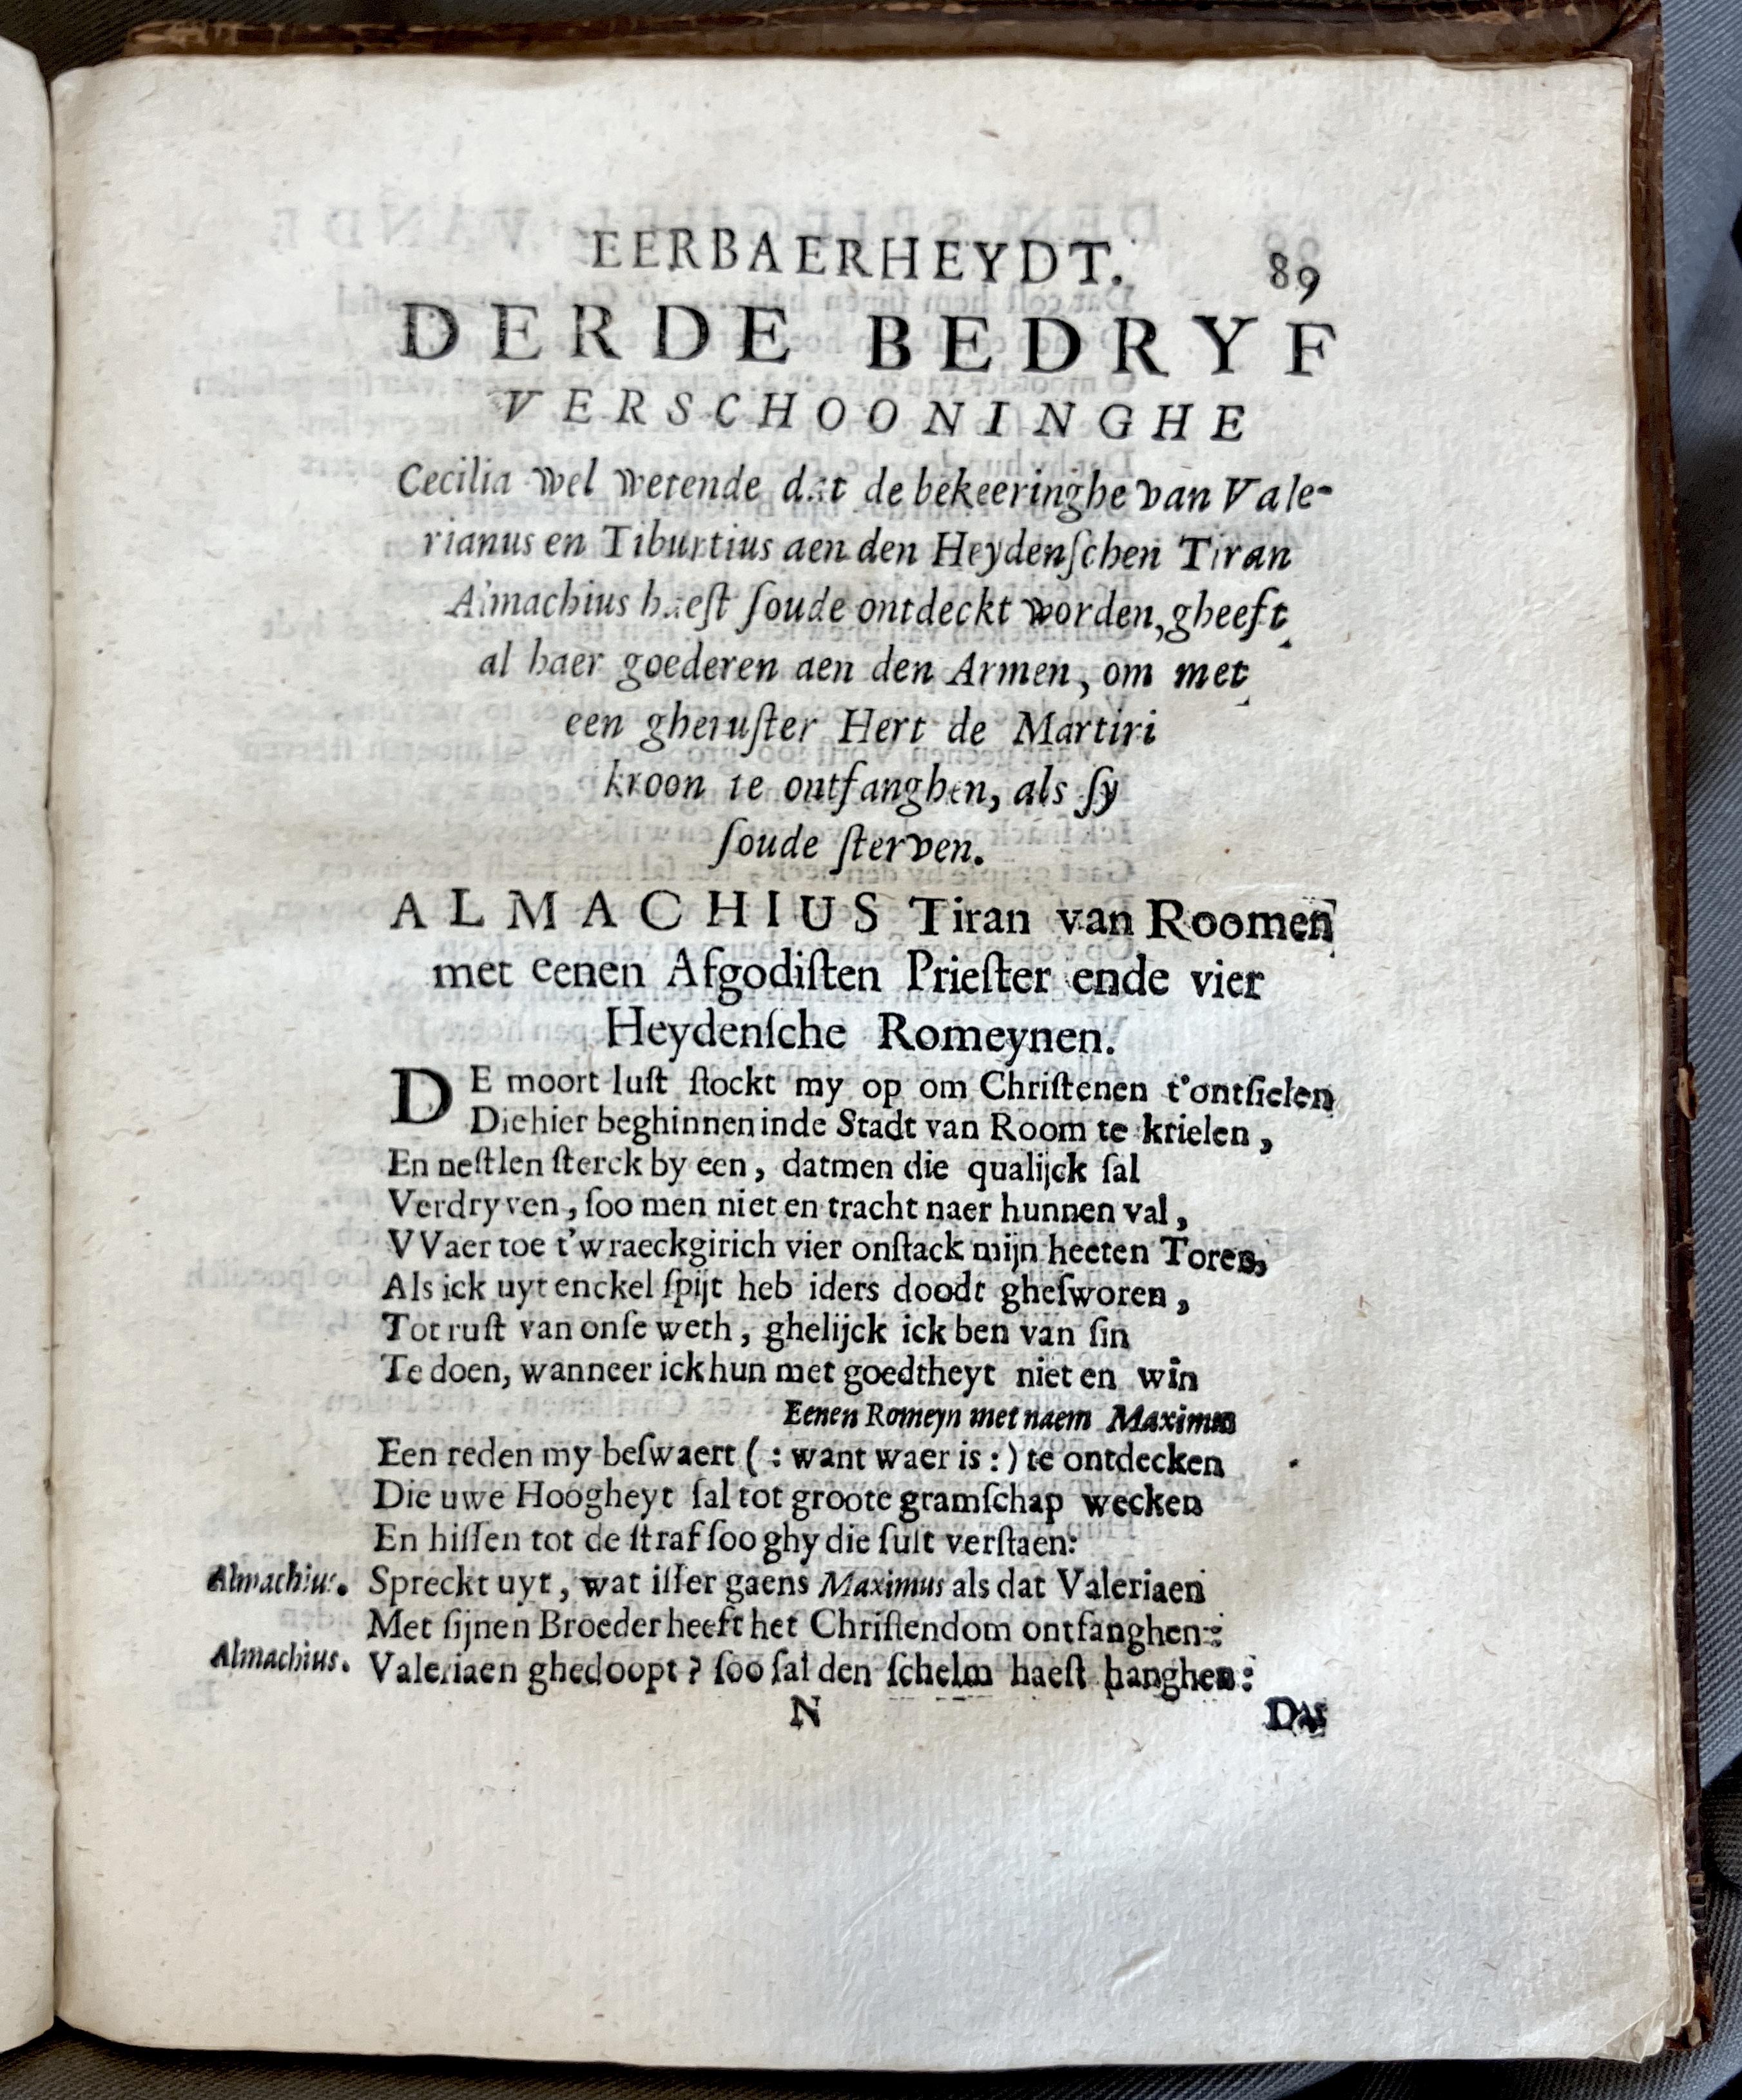 EERBAERHEYDT. 89
DERDE BEDRYF
VERSCHOONINGHE
Cecilia wel wetende dat de bekeeringhe van Vale-
rianus en Tiburtius aen den Heydenſchen Tiran
Almachius haeſt ſoude ontdeckt worden, gheeft
al haer goederen aen den Armen, om met
een gheruſter Hert de Martiri
kroon te ontfanghen, als ſy
ſoude ſterven.
ALMACHIUS Tiran van Roomen
met eenen Afgodiſten Prieſter ende vier
Heydenſche Romeynen.
DE moort luſt ſtockt my op om Chriſtenen t'ontſielen
Die hier beghinnen inde Stadt van Room te krielen,
En neſtlen ſterck by een, datmen die qualijck ſal
Verdryven, ſoo men niet en tracht naer hunnen val,
VVaer toe t'wraeckgirich vier onſtack mijn heeten Toren,
Als ick uyt enckel ſpijt heb iders doodt gheſworen,
Tot ruſt van onſe weth, ghelijck ick ben van ſin
Te doen, wanneer ick hun met goedtheyt niet en win
Eenen Romeyn met naem Maximus
Een reden my beſwaert (: want waer is :) te ontdecken
Die uwe Hoogheyt ſal tot groote gramſchap wecken
En hiſſen tot de ſtraf ſoo ghy die ſult verſtaen:
Almachius. Spreckt uyt, wat iſſer gaens Maximus als dat Valeriaen
Met ſijnen Broeder heeft het Chriſtendom ontfanghen:
Almachius. Valeriaen ghedoopt? ſoo ſal den ſchelm haeſt hanghen:
N Dat